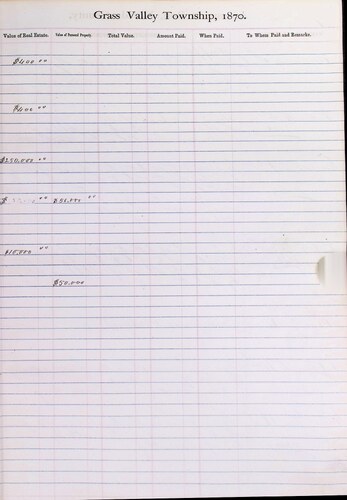 Grass Valley Township, 1870.
Value of Real Estate. Value of Personal Property. Total Value. Amount Paid. When Paid. To Whom Paid and Remarks.
$400 00
$400 00
00
$ 00 00
$10,000 00
$50,000